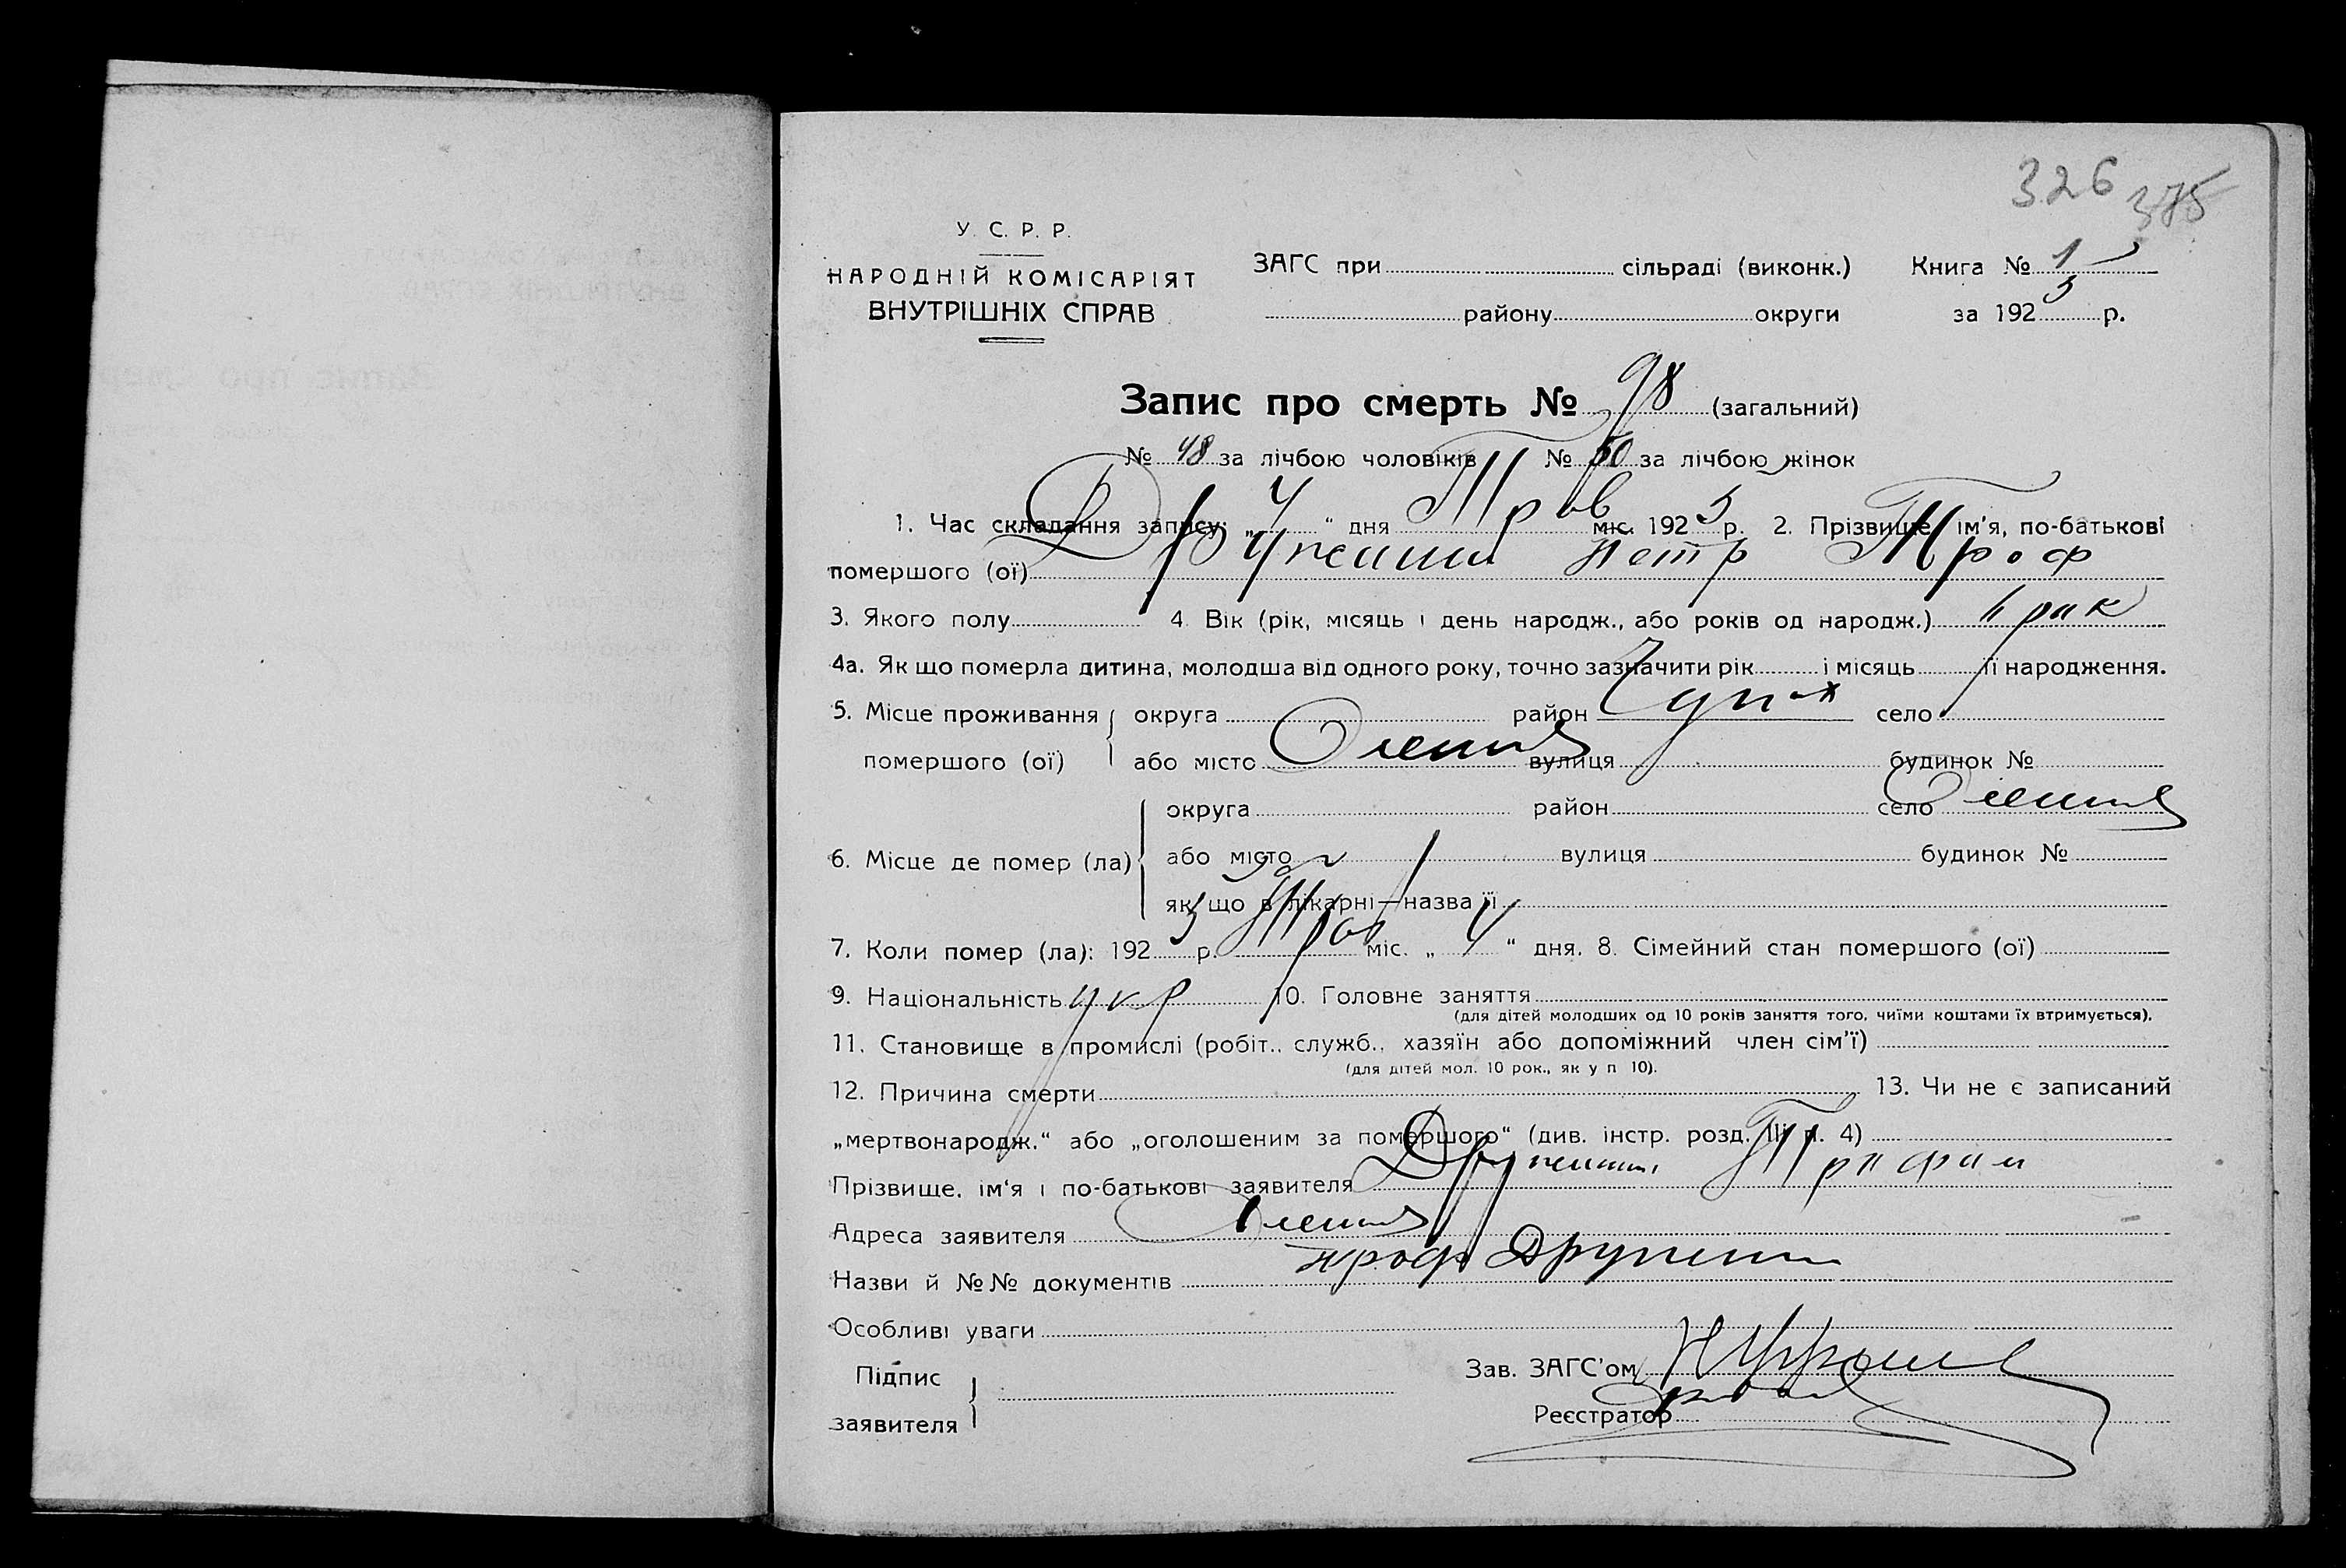 326 375
У. С. Р. Р.
НАРОДНІЙ КОМІСАРІЯТ
ВНУТРІШНІХ СПРАВ
ЗАГС при сільраді (виконк.) Книга № 1
району округи за 1923 р.
Запис про смерть № 98 (загальний)
№ 48 за лічбою чоловіків № 50 за лічбою жінок
1. Час складання запису: „ 4 “ дня Трав міс. 1923 р. 2. Прізвище, ім'я, по-батькові
помершого (ої) Петр Троф
3. Якого полу 4. Вік (рік, місяць і день народж., або років од народж.) рик
4а. Як що померла дитина, молодша від одного року, точно зазначити рік і місяць її народження.
5. Місце проживання округа район село
помершого (ої) або місто вулиця будинок №
округа район село
6. Місце де помер (ла) або місто вулиця будинок №
як що в лікарні—назва її
7. Коли помер (ла): 1923 р. Трав міс. „ 4 “ дня. 8. Сімейний стан помершого (ої)
9. Національність укр 10. Головне заняття
(для дітей молодших од 10 років заняття того, чиїми коштами їх втримується).
11. Становище в промислі (робіт., служб., хазяїн або допоміжний член сім'ї)
(для дітей мол. 10 рок., як у п 10).
12. Причина смерти 13. Чи не є записаний
„мертвонародж.“ або „оголошеним за помершого“ (див. інстр. розд. III п. 4)
Прізвище, ім'я і по-батькові заявителя Трифим
Адреса заявителя
Назви й №№ документів
Особливі уваги
Підпис
заявителя
Зав. ЗАГС'ом
Реєстратор